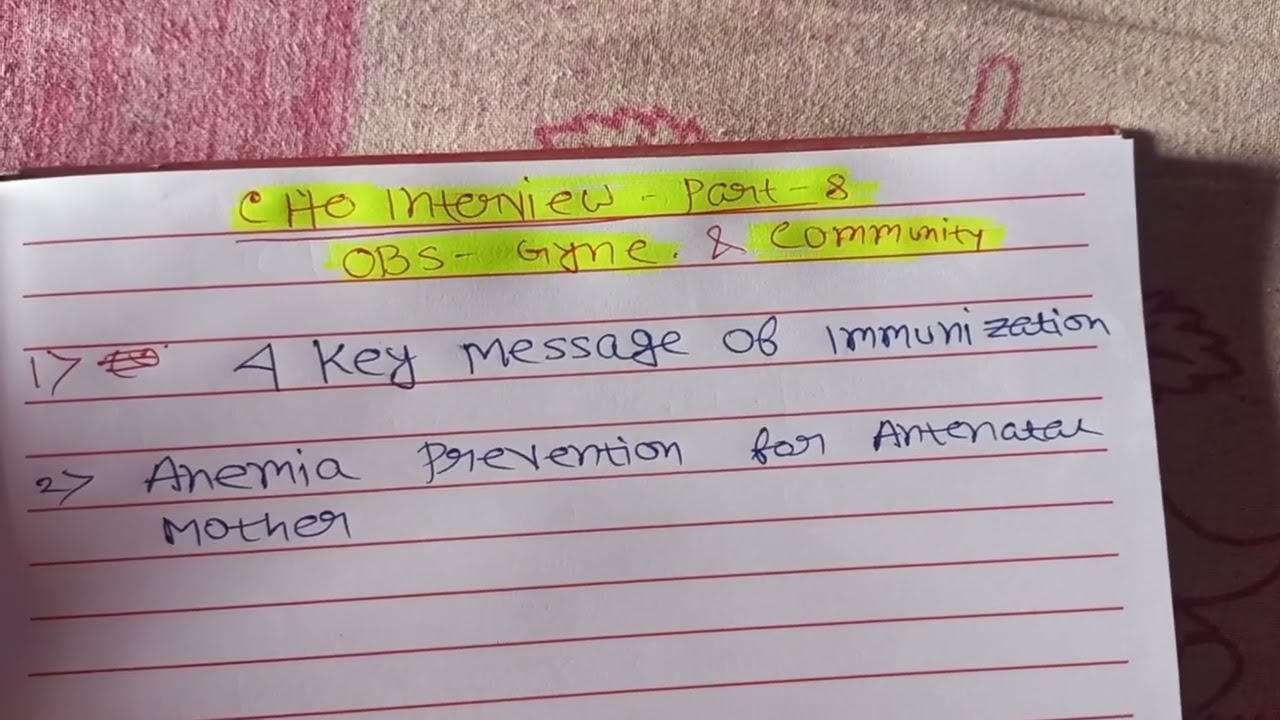 CHO Interview - Part - 8
OBS - Gyne. & Community
1) 4 Key Message of Immunization
2) Anemia Prevention for Antenatal
Mother